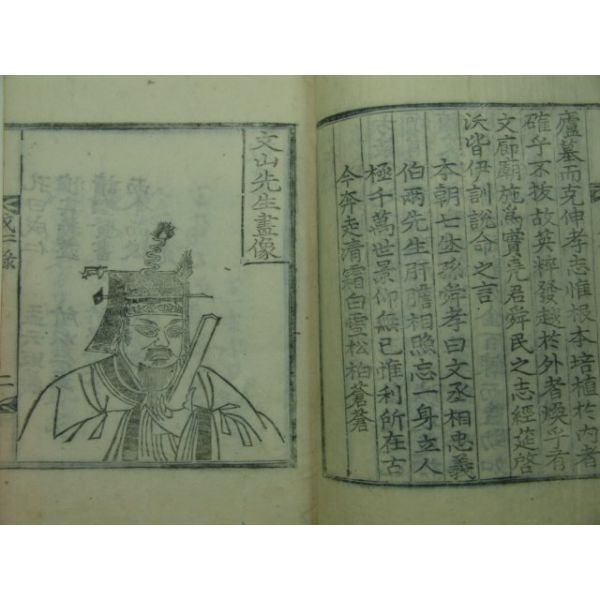 廬墓而克伸孝志惟根本培植於內者
確乎不拔故英粹發越於外者煥乎有
文廊廟施爲實堯君舜民之志經筵啓
沃皆伊訓說命之言
本朝七世孫舜孝曰文丞相忠義
伯兩先生肝膽相照忘一身立人
極千萬世景仰無已惟利所在古
今奔走清霜白雪松柏蒼蒼
文山先生畫像
成仁錄
二